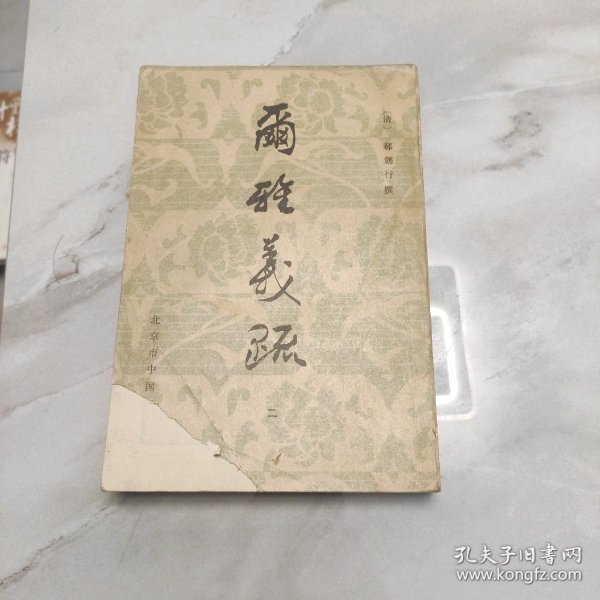 〔清〕郝懿行撰
爾雅義疏
二
北京市中国
孔夫子旧书网
www.kongfz.com